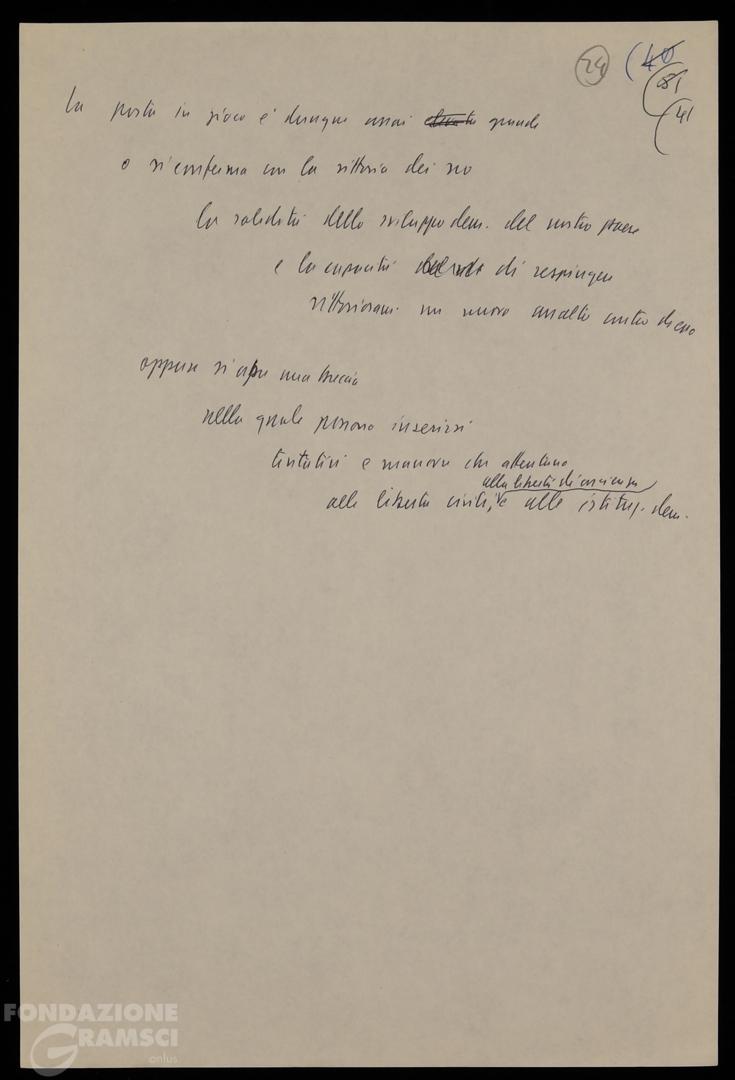 24 (40
(81
(41
La posta in gioco è dunque assai elevata grande
o si conferma con la vittoria dei no
la solidità dello sviluppo dem. del nostro paese
e la capacità di respingere
vittoriosam. un nuovo assalto contro di esso
oppure si apre una breccia
nella quale possono inserirsi
tentativi e manovre che attentano
alla libertà di coscienza
alle libertà civili, e alle istituz. dem.
FONDAZIONE
GRAMSCI
onlus